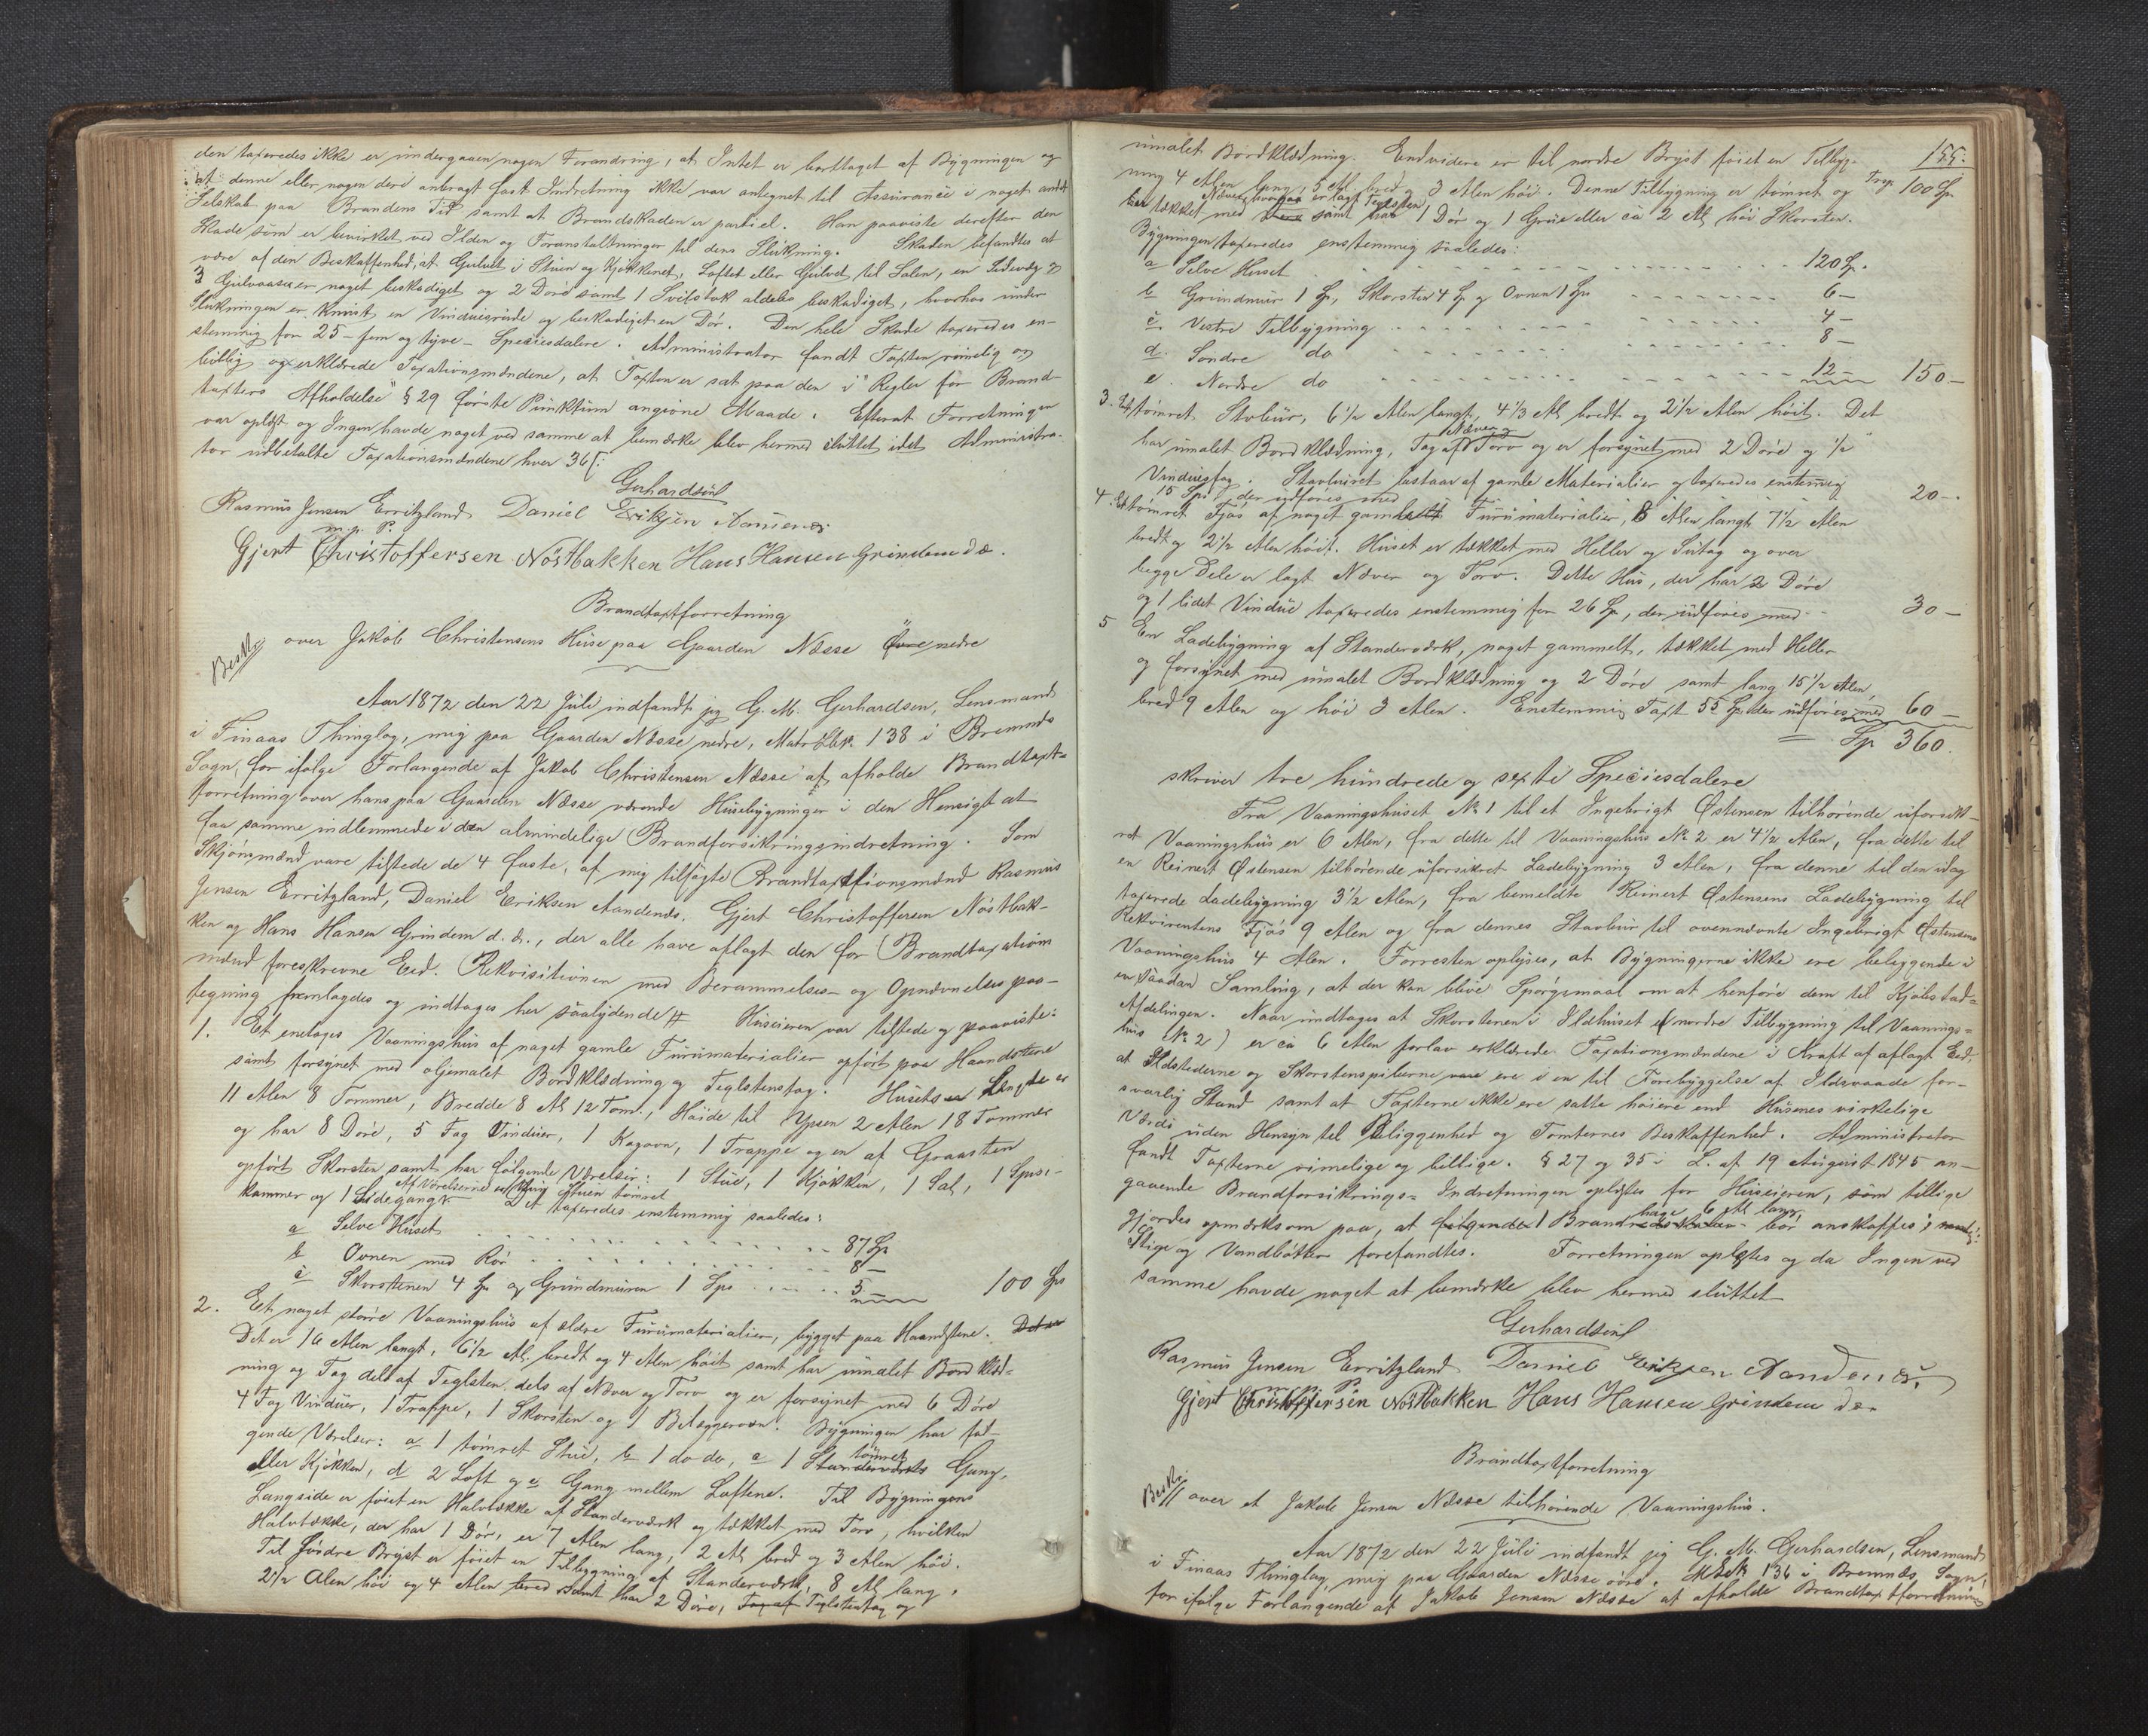 den taxeredes ikke er undergaaen nogen Forandring, at Intet er borttaget af Bygningen og
at denne eller nogen deri anbragt fast Indretning ikke var antegnet til Assurance i noget andet
Selskab paa Brandens Tid samt at Brandskaden er partiel. Han paaviste derefter den
Skade som er bevirket ved Ilden og Foranstaltninger til dens Slukning. Skaden befandtes at
være af den Beskaffenhed, at Gulvet i Stuen og Kjøkkenet, Loftet eller Gulvet til Salen, en Sidevæg og
3 Gulvaaser er noget beskadiget og 2 Døre samt 1 Svilstok aldeles beskadiget, hvorhos under
Slukningen er knust en Vinduesrude og beskadiget en Dør. Den hele Skade taxeredes en-
stemmig for 25 - fem og tyve - Speciesdalere. Administrator fandt Taxten rimelig og
billig og erklærede Taxationsmændene, at Taxten er sat paa den i "Regler for Brand-
taxters Afholdelse" § 29 første Punktum angivne Maade. Efterat Forretningen
var oplæst og Ingen havde noget ved samme at bemærke blev hermed sluttet idet Administra-
tor udbetalte Taxationsmændene hver 36 ſ:
Gerhardsen
Rasmus Jensen Erritzland Daniel Eriksen Aanenes
m. p. P.
Gjert Christoffersen Nöstbakken Hans Hansen Grindem d. æ.
Brandtaxtforretning
Besk.
over Jakob Christensens Huse paa Gaarden Næsse Øvre nedre
Aar 1872 den 22 Juli indfandt jeg G. M. Gerhardsen, Lensmand
i Finaas Thinglag, mig paa Gaarden Næsse nedre, Matr. Løb. No 138 i Bremnes
Sogn, for ifølge Forlangende af Jakob Christensen Næsse at afholde Brandtaxt-
forretning over hans paa Gaarden Næsse værende Husebygninger i den Hensigt at
faa samme indlemmede i den almindelige Brandforsikringsindretning. Som
Skjønsmænd vare tilstede de 4 faste, af mig tilsagte Brandtaxationsmænd Rasmus
Jensen Erritzland, Daniel Eriksen Aandenæs, Gjert Christoffersen Nöstbak-
ken og Hans Hansen Grindem d. æ., der alle have aflagt den for Brandtaxations
mænd foreskrevne Eed. Rekvisitionen med Berammelses- og Opnævnelses paa-
tegning fremlagdes og indtages her saalydende # Huseieren var tilstede og paaviste:
1. Et enetages Vaaningshus af noget gamle Furumaterialier opført paa Haandstene
samt forsynet med oljemalet Bordklædning og Teglstenstag. Husets Længde er
11 Alen 8 Tommer, Bredde 8 Al 12 Tom., Høide til Ypsen 2 Alen 18 Tommer
og har 8 Døre, 5 Fag Vinduer, 1 Kagovn, 1 Trappe og en af Graasten
opført Skorsten samt har følgende Værelser: 1 Stue, 1 Kjøkken, 1 Sal, 1 Spise-
Af Værelserne er kun Stuen tømret
kammer og 1 Sidegang. Det taxeredes enstemmig saaledes:
a Selve Huset . . . . . . . . 87 Sp
b Ovnen med Rør . . . . . . . . 8 —
c Skorstenen 4 Sp og Grundmuren 1 Sps . . . . 5 — 100 Sps
2. Et noget større Vaaningshus af ældre Furumaterialier, bygget paa Haandstene. Det er
Det er 16 Alen langt, 6½ Al. bredt og 4 Alen høit samt har umalet Bordklæd-
ning og Tag dels af Teglsten dels af Næver og Torv og er forsynet med 6 Døre
4 Fag Vinduer, 1 Trappe, 1 Skorsten og 1 Bilæggerovn. Bygningen har føl-
gende Værelser: a 1 tømret Stue, b 1 do do, c 1 Standerværks tømret Gang,
eller Kjøkken, d 2 Loft og e Gang mellem Loftene. Til Bygningens
Langside er føiet en Halvtække af Standerværk og tækket med Torv, hvilken
Halvtække, der har 1 Dør, er 7 Alen lang, 2 Al bred og 3 Alen høi.
Til søndre Bryst er føiet en Tilbygning af Standerværk, 8 Al lang,
2½ Alen høi og 4 Alen bred samt har 2 Døre, Tag af Teglstentag og
155.
umalet Bordklædning. Endvidere er til nordre Bryst føiet en Tilbyg-
Trsp. 100 Sp.
ning 4 Alen lang, 5 Al. bred og 3 Alen høi. Denne Tilbygning er tømret og
Næver hvorpaa er lagt Teglsten
tækket med samt har 1 Dør og 1 Grue eller ca 2 Al. høi Skorsten.
Bygningen taxeredes enstemmig saaledes:
a Selve Huset . . . . . . . . 120 Sp.
b Grundmur 1 Sp, Skorsten 4 Sp og Ovnen 1 Sp . . . . 6 —
c. Vestre Tilbygning . . . . . . . . 4 —
d. Søndre do . . . . . . . . 8 —
e. Nordre do . . . . . . . . 12 — 150 —
3. Et tømret Stabur, 6½ Alen langt, 4⅓ Al bredt og 2½ Alen høit. Det
Næver og
har umalet Bordklædning, Tag af Torv og er forsynet med 2 Døre og ½
Vinduesfag. Stavburet bestaar af gamle Materialier og taxeredes enstemmig
15 Sp. der udføres med 20 —
4. Et tømret Fjøs af noget gamle Furumaterialier, 8 Alen langt 7½ Alen
bredt og 2½ Alen høit. Huset er tækket med Heller og Sutag og over
begge Dele er lagt Næver og Torv. Dette Hus, der har 2 Døre
og 1 lidet Vindue taxeredes enstemmig for 26 Sp, der udføres med 30 —
5 En Ladebygning af Standerværk, noget gammelt, tækket med Heller
og forsynet med umalet Bordklædning og 2 Døre samt lang 15½ Alen,
bred 9 Alen og høi 3 Alen. Enstemmig Taxt 55 Sp der udføres med 60 —
Sp 360.
skriver tre hundrede og sexti Speciesdalere
Fra Vaaningshuset No 1 til et Ingebrigt Østensen tilhørende uforsik-
ret Vaaningshus er 6 Alen, fra dette til Vaaningshus No 2 er 4½ Alen, fra dette til
en Reinert Østensen tilhørende uforsikret Ladebygning 3 Alen, fra denne til den idag
taxerede Ladebygning 3½ Alen, fra bemeldte Reinert Østensens Ladebygning til
Rekvirentens Fjøs 9 Alen og fra dennes Stavbur til ovennævnte Ingebrigt Østensens
Vaaningshus 4 Alen. Forresten oplyses, at Bygningerne ikke ere beliggende i
en saadan Samling, at der kan blive Spørgsmaal om at henføre dem til Kjøbstad-
Afdelingen. Naar undtages at Skorstenen i Ildhuset (nordre Tilbygning til Vaanings-
hus No 2) er ca 6 Alen forlav erklærede Taxationsmændene i Kraft af aflagt Eed,
at Ildstederne og Skorstenspiberne vare ere i en til Forebyggelse af Ildsvaade for-
svarlig Stand samt at Taxterne ikke ere satte høiere end Husenes virkelige
Værdi uden Hensyn til Beliggenhed og Tomternes Beskaffenhed. Administrator
fandt Taxterne rimelige og billige. § 27 og 35 i L. af 19 August 1845 an-
gaaende Brandforsikrings-Indretningen oplæstes for Huseieren, som tillige
hage 6 Al lang
gjordes opmærksom paa, at følgende 1 Brand bør anskaffes;
Stige og Vandbøtter forefandtes. Forretningen oplæstes og da Ingen ved
samme havde noget at bemærke blev hermed sluttet
Gerhardsen
Rasmus Jensen Erritzland Daniel Eriksen Aandenæs
m. p. P.
Gjert Christoffersen Nöstbakken Hans Hansen Grindem d. æ.
Brandtaxtforretning
Besk.
over et Jakob Jensen Næsse tilhørende Vaaningshus.
Aar 1872 den 22 Juli indfandt jeg G. M. Gerhardsen, Lensmand
i Finaas Thinglag, mig paa Gaarden Næsse øvre, 136 i Bremnæs Sogn,
for ifølge Forlangende af Jakob Jensen Næsse at afholde Brandtaxtforretning